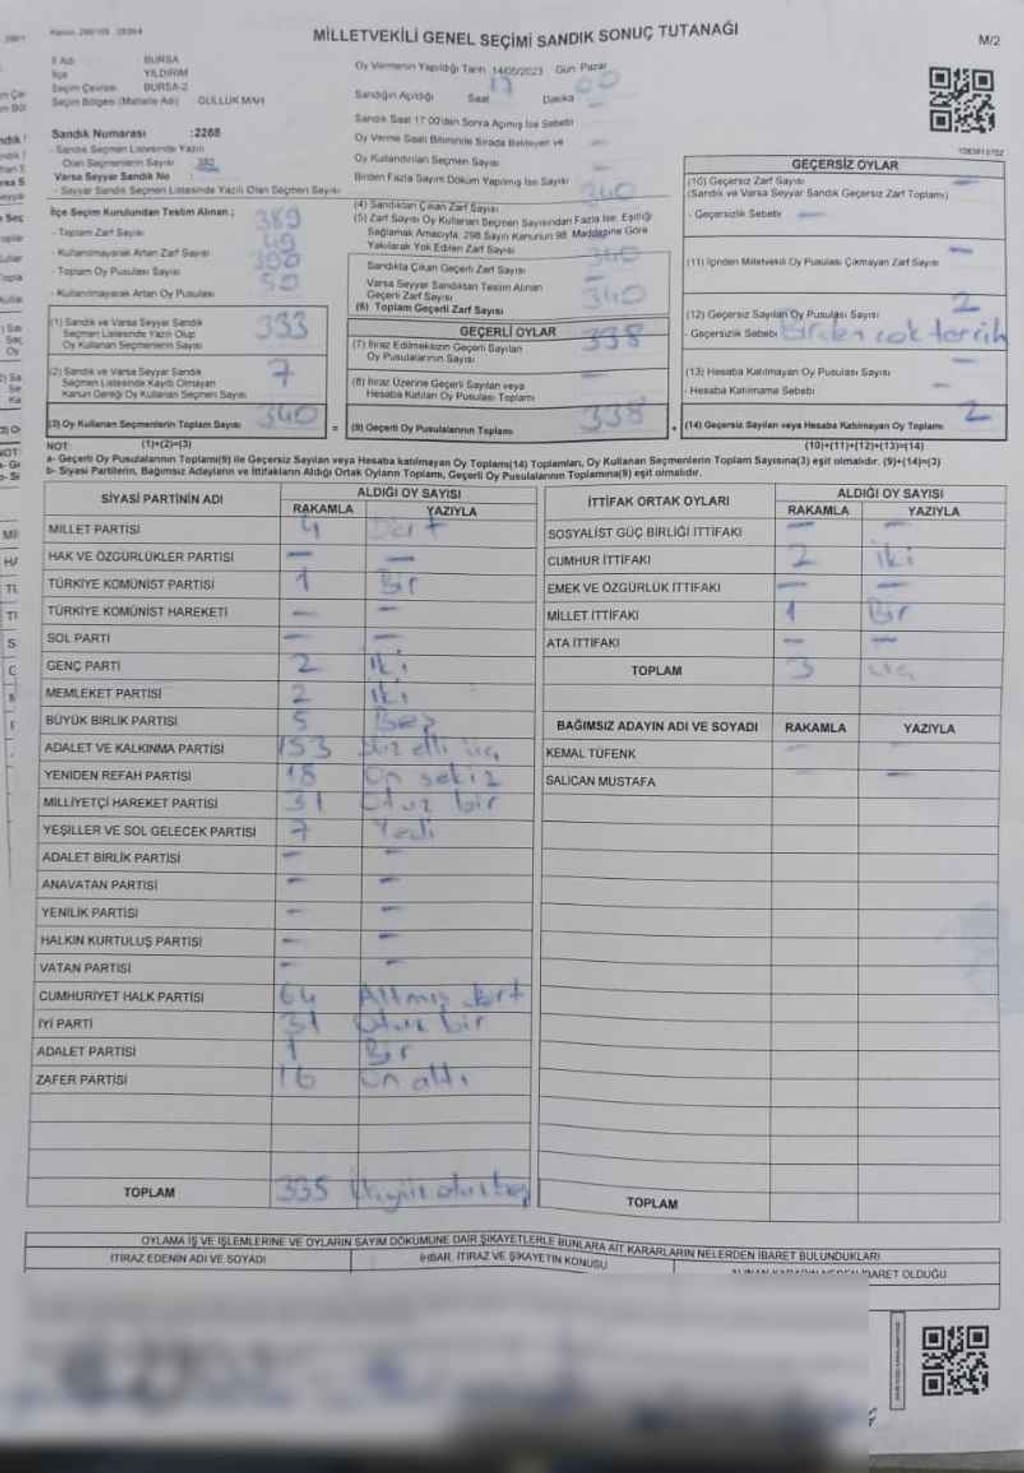 MİLLETVEKİLİ GENEL SEÇİMİ SANDIK SONUÇ TUTANAĞI
M/2
İl Adı BURSA
İlçe YILDIRIM
Seçim Çevresi BURSA-2
Seçim Bölgesi (Mahalle Adı) GÜLLÜK MAH
Sandık Numarası :2268
- Sandık Seçmen Listesinde Yazılı
Olan Seçmenlerin Sayısı 382
Varsa Seyyar Sandık No :
- Seyyar Sandık Seçmen Listesinde Yazılı Olan Seçmen Sayısı
Oy Vermenin Yapıldığı Tarih 14/05/2023 Gün: Pazar
Sandığın Açıldığı Saat 17 Dakika 00
Sandık Saat 17:00'den Sonra Açılmış İse Sebebi
Oy Verme Saati Bitiminde Sırada Bekleyen ve
Oy Kullandırılan Seçmen Sayısı
Birden Fazla Sayım Döküm Yapılmış İse Sayısı
İlçe Seçim Kurulundan Teslim Alınan ;
- Toplam Zarf Sayısı 389
- Kullanılmayarak Artan Zarf Sayısı 49
- Toplam Oy Pusulası Sayısı
- Kullanılmayarak Artan Oy Pusulası 50
(1) Sandık ve Varsa Seyyar Sandık
Seçmen Listesinde Yazılı Olup
Oy Kullanan Seçmenlerin Sayısı 333
(2) Sandık ve Varsa Seyyar Sandık
Seçmen Listesinde Kaydı Olmayan
Kanun Gereği Oy Kullanan Seçmen Sayısı 7
(3) Oy Kullanan Seçmenlerin Toplam Sayısı 340
(4) Sandıktan Çıkan Zarf Sayısı 340
(5) Zarf Sayısı Oy Kullanan Seçmen Sayısından Fazla İse, Eşitliği
Sağlamak Amacıyla, 298 Sayılı Kanunun 98. Maddesine Göre
Yakılarak Yok Edilen Zarf Sayısı
Sandıkta Çıkan Geçerli Zarf Sayısı 340
Varsa Seyyar Sandıktan Teslim Alınan
Geçerli Zarf Sayısı
(6) Toplam Geçerli Zarf Sayısı 340
GEÇERLİ OYLAR
(7) İtiraz Edilmeksizin Geçerli Sayılan
Oy Pusulalarının Sayısı 338
(8) İtiraz Üzerine Geçerli Sayılan veya
Hesaba Katılan Oy Pusulaları Toplamı
= (9) Geçerli Oy Pusulalarının Toplamı 338
GEÇERSİZ OYLAR
(10) Geçersiz Zarf Sayısı
(Sandık ve Varsa Seyyar Sandık Geçersiz Zarf Toplamı)
- Geçersizlik Sebebi
(11) İçinden Milletvekili Oy Pusulası Çıkmayan Zarf Sayısı
(12) Geçersiz Sayılan Oy Pusulası Sayısı 2
- Geçersizlik Sebebi Birden çok tercih
(13) Hesaba Katılmayan Oy Pusulası Sayısı
- Hesaba Katılmama Sebebi
+ (14) Geçersiz Sayılan veya Hesaba Katılmayan Oy Toplamı 2
NOT: (1)+(2)=(3) (10)+(11)+(12)+(13)=(14)
a- Geçerli Oy Pusulalarının Toplamı(9) ile Geçersiz Sayılan veya Hesaba katılmayan Oy Toplamı(14) Toplamları, Oy Kullanan Seçmenlerin Toplam Sayısına(3) eşit olmalıdır. (9)+(14)=(3)
b- Siyasi Partilerin, Bağımsız Adayların ve İttifakların Aldığı Ortak Oyların Toplamı, Geçerli Oy Pusulalarının Toplamına(9) eşit olmalıdır.
SİYASİ PARTİNİN ADI ALDIĞI OY SAYISI
RAKAMLA YAZIYLA
MİLLET PARTİSİ 4 Dört
HAK VE ÖZGÜRLÜKLER PARTİSİ — —
TÜRKİYE KOMÜNİST PARTİSİ 1 Bir
TÜRKİYE KOMÜNİST HAREKETİ — —
SOL PARTİ — —
GENÇ PARTİ 2 İki
MEMLEKET PARTİSİ 2 İki
BÜYÜK BİRLİK PARTİSİ 5 Beş
ADALET VE KALKINMA PARTİSİ 153 yüz elli üç
YENİDEN REFAH PARTİSİ 18 On sekiz
MİLLİYETÇİ HAREKET PARTİSİ 31 Otuz bir
YEŞİLLER VE SOL GELECEK PARTİSİ 7 Yedi
ADALET BİRLİK PARTİSİ — —
ANAVATAN PARTİSİ — —
YENİLİK PARTİSİ — —
HALKIN KURTULUŞ PARTİSİ — —
VATAN PARTİSİ — —
CUMHURİYET HALK PARTİSİ 64 Altmış dört
İYİ PARTİ 31 Otuz bir
ADALET PARTİSİ 1 Bir
ZAFER PARTİSİ 16 On altı
TOPLAM 335 Üçyüz otuz beş
İTTİFAK ORTAK OYLARI ALDIĞI OY SAYISI
RAKAMLA YAZIYLA
SOSYALİST GÜÇ BİRLİĞİ İTTİFAKI — —
CUMHUR İTTİFAKI 2 iki
EMEK VE ÖZGÜRLÜK İTTİFAKI — —
MİLLET İTTİFAKI 1 Bir
ATA İTTİFAKI — —
TOPLAM 3 üç
BAĞIMSIZ ADAYIN ADI VE SOYADI RAKAMLA YAZIYLA
KEMAL TÜFENK — —
SALİCAN MUSTAFA — —
TOPLAM
OYLAMA İŞ VE İŞLEMLERİNE VE OYLARIN SAYIM DÖKÜMÜNE DAİR ŞİKAYETLERLE BUNLARA AİT KARARLARIN NELERDEN İBARET BULUNDUKLARI
İTİRAZ EDENİN ADI VE SOYADI
İHBAR, İTİRAZ VE ŞİKAYETİN KONUSU
İBARET OLDUĞU